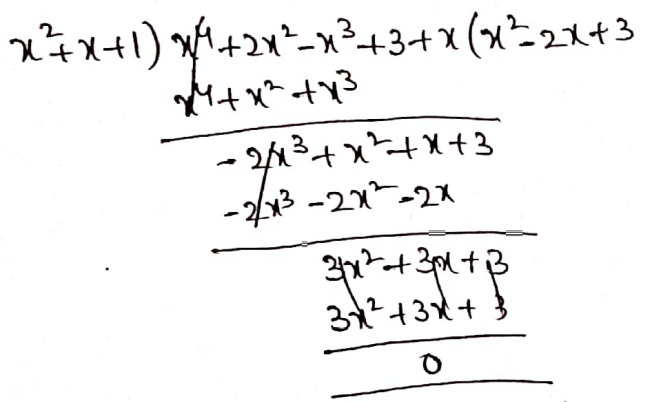 x²+x+1) x⁴+2x²-x³+3+x (x²-2x+3
x⁴+x²+x³
-2x³+x²+x+3
-2x³-2x²-2x
3x²+3x+3
3x²+3x+3
0